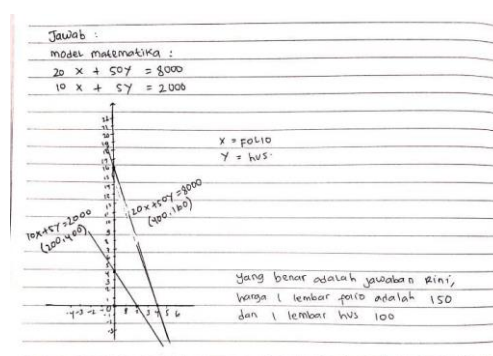 Jawab :
model matematika :
20 x + 50y = 8000
10 x + 5y = 2000
x = FOLIO
y = hvs.
20x+50y=8000
(400,160)
10x+5y=2000
(200,400)
-4 -3 -2 -1 0 1 2 3 4 5 6
yang benar adalah jawaban Rini,
harga 1 lembar folio adalah 150
dan 1 lembar hvs 100